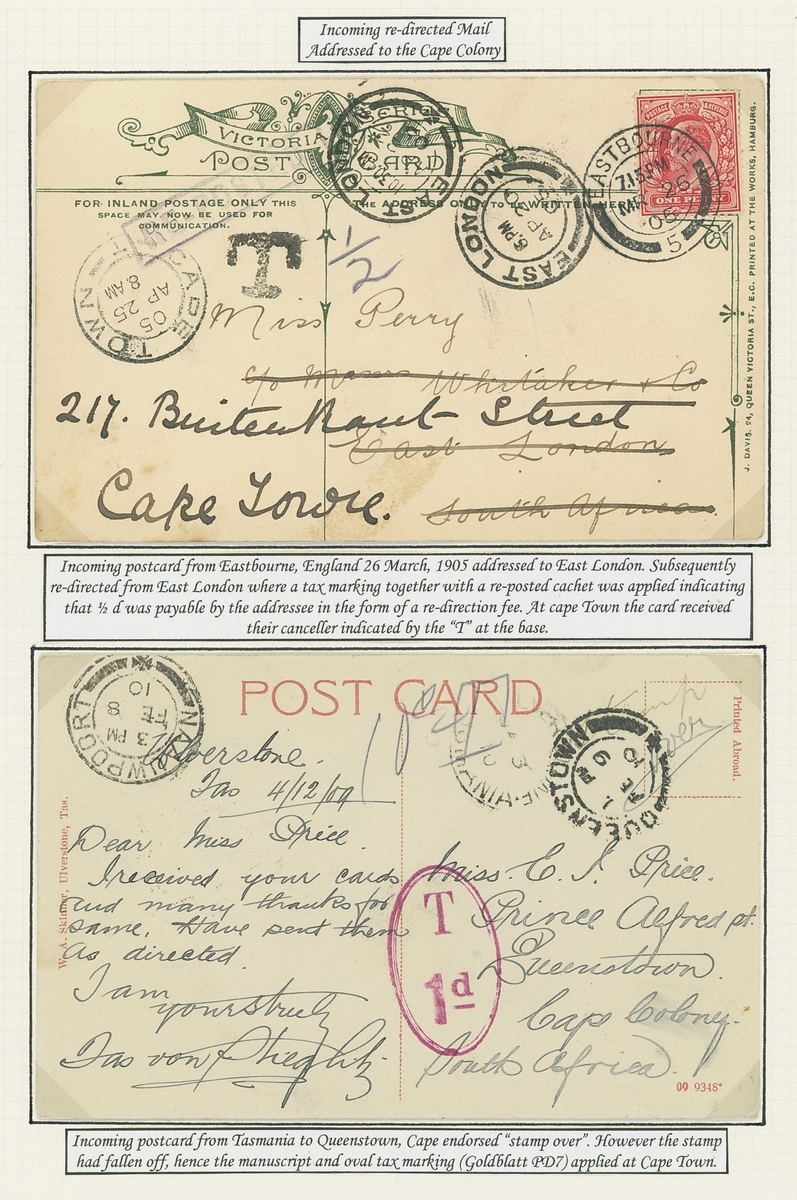 Incoming re-directed Mail
Addressed to the Cape Colony
VICTORIA SERIES
POST CARD
FOR INLAND POSTAGE ONLY THIS
SPACE MAY NOW BE USED FOR
COMMUNICATION.
THE ADDRESS ONLY TO BE WRITTEN HERE
EAST LONDON
10.30 AM
EAST LONDON
6 PM
AP 22
05
EASTBOURNE
7.15 PM
MR 26
05
5
ONE PENNY
J. DAVIS. 24, QUEEN VICTORIA ST., E.C. PRINTED AT THE WORKS, HAMBURG.
T
1/2
CAPE TOWN
8 AM
AP 25
05
T
Miss Perry
c/o Messrs Whitaker & Co
217. Buitenkant Street
East London
Cape Town.
South Africa.
Incoming postcard from Eastbourne, England 26 March, 1905 addressed to East London. Subsequently
re-directed from East London where a tax marking together with a re-posted cachet was applied indicating
that ½ d was payable by the addressee in the form of a re-direction fee. At cape Town the card received
their canceller indicated by the "T" at the base.
POST CARD
NAAUWPOORT
3 PM
FE 8
10
QUEENSTOWN
Stamp
over
Printed Abroad.
W. A. Skinner, Ulverstone, Tas.
Ulverstone.
Tas 4/12/09
Dear Miss Price.
I received your cards
and many thanks for
same. Have sent them
as directed.
I am
yours truly
Jas von Stieglitz
T
1d
Miss. E. J. Price.
Prince Alfred pt.
Queenstown.
Cape Colony.
South Africa.
09 9348*
Incoming postcard from Tasmania to Queenstown, Cape endorsed "stamp over". However the stamp
had fallen off, hence the manuscript and oval tax marking (Goldblatt PD7) applied at Cape Town.